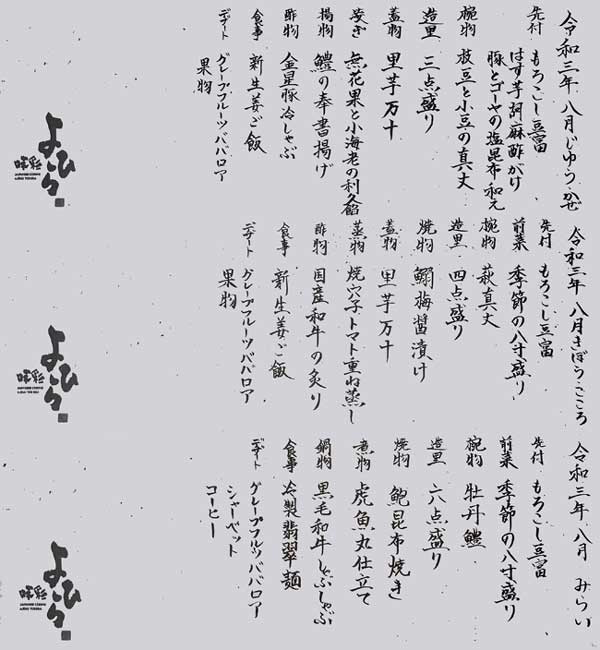 令和三年 八月 じゆうかぜ
先付 もろこし豆富
はす芋胡麻酢がけ
豚とゴーヤの塩昆布和え
椀物 枝豆と小豆の真丈
造里 三点盛り
蓋物 里芋万十
凌ぎ 無花果と小海老の利久餡
揚物 鱧の奉書揚げ
酢物 金星豚冷しゃぶ
食事 新生姜ご飯
デザート グレープフルーツババロア
果物
よひら
令和三年 八月 きぼう こころ
先付 もろこし豆富
前菜 季節の八寸盛り
椀物 萩真丈
造里 四点盛り
焼物 鰯梅醤漬け
蓋物 里芋万十
蒸物 焼穴子トマト重ね蒸し
酢物 国産和牛の炙り
食事 新生姜ご飯
デザート グレープフルーツババロア
果物
よひら
令和三年 八月 みらい
先付 もろこし豆富
前菜 季節の八寸盛り
椀物 牡丹鱧
造里 六点盛り
焼物 鮑昆布焼き
煮物 虎魚丸仕立て
鍋物 黒毛和牛しゃぶしゃぶ
食事 冷製翡翠麺
デザート グレープフルーツババロア
シャーベット
コーヒー
よひら